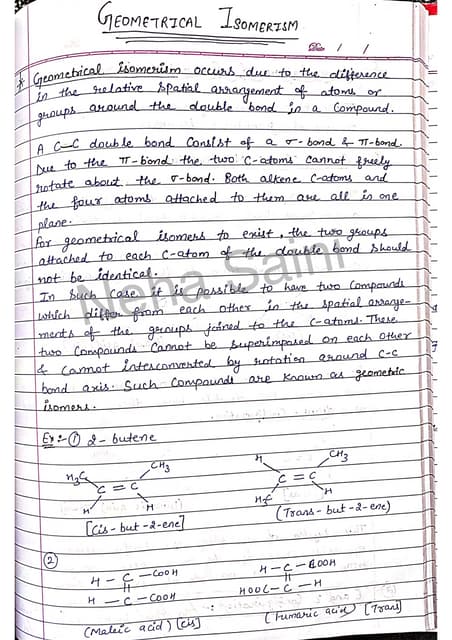 GEOMETRICAL ISOMERISM
/ /
* Geometrical isomerism occurs due to the difference
in the relative spatial arrangement of atoms or
groups around the double bond in a Compound.
A C-C double bond Consist of a σ-bond & π-bond.
Due to the π-bond the two C-atoms Cannot freely
rotate about the σ-bond. Both alkene C-atoms and
the four atoms attached to them are all in one
plane.
For geometrical isomers to exist, the two groups
attached to each C-atom of the double bond should
not be identical.
In Such Case it is possible to have two Compounds
which differ from each other in the spatial arrange-
ments of the groups joined to the C-atoms. These
two Compounds Cannot be Superimposed on each other
& Cannot interconverted by rotation around C-C
bond axis. Such Compounds are Known as geometric
isomers.
Neha Saini
Ex:- ① 2-butene
H3C CH3
C = C
H H
[Cis-but-2-ene]
H CH3
C = C
H
(Trans-but-2-ene)
②
H - C - COOH
||
H - C - COOH
(Maleic acid) [Cis]
H - C - COOH
||
HOOC - C - H
(Fumaric acid) [Trans]